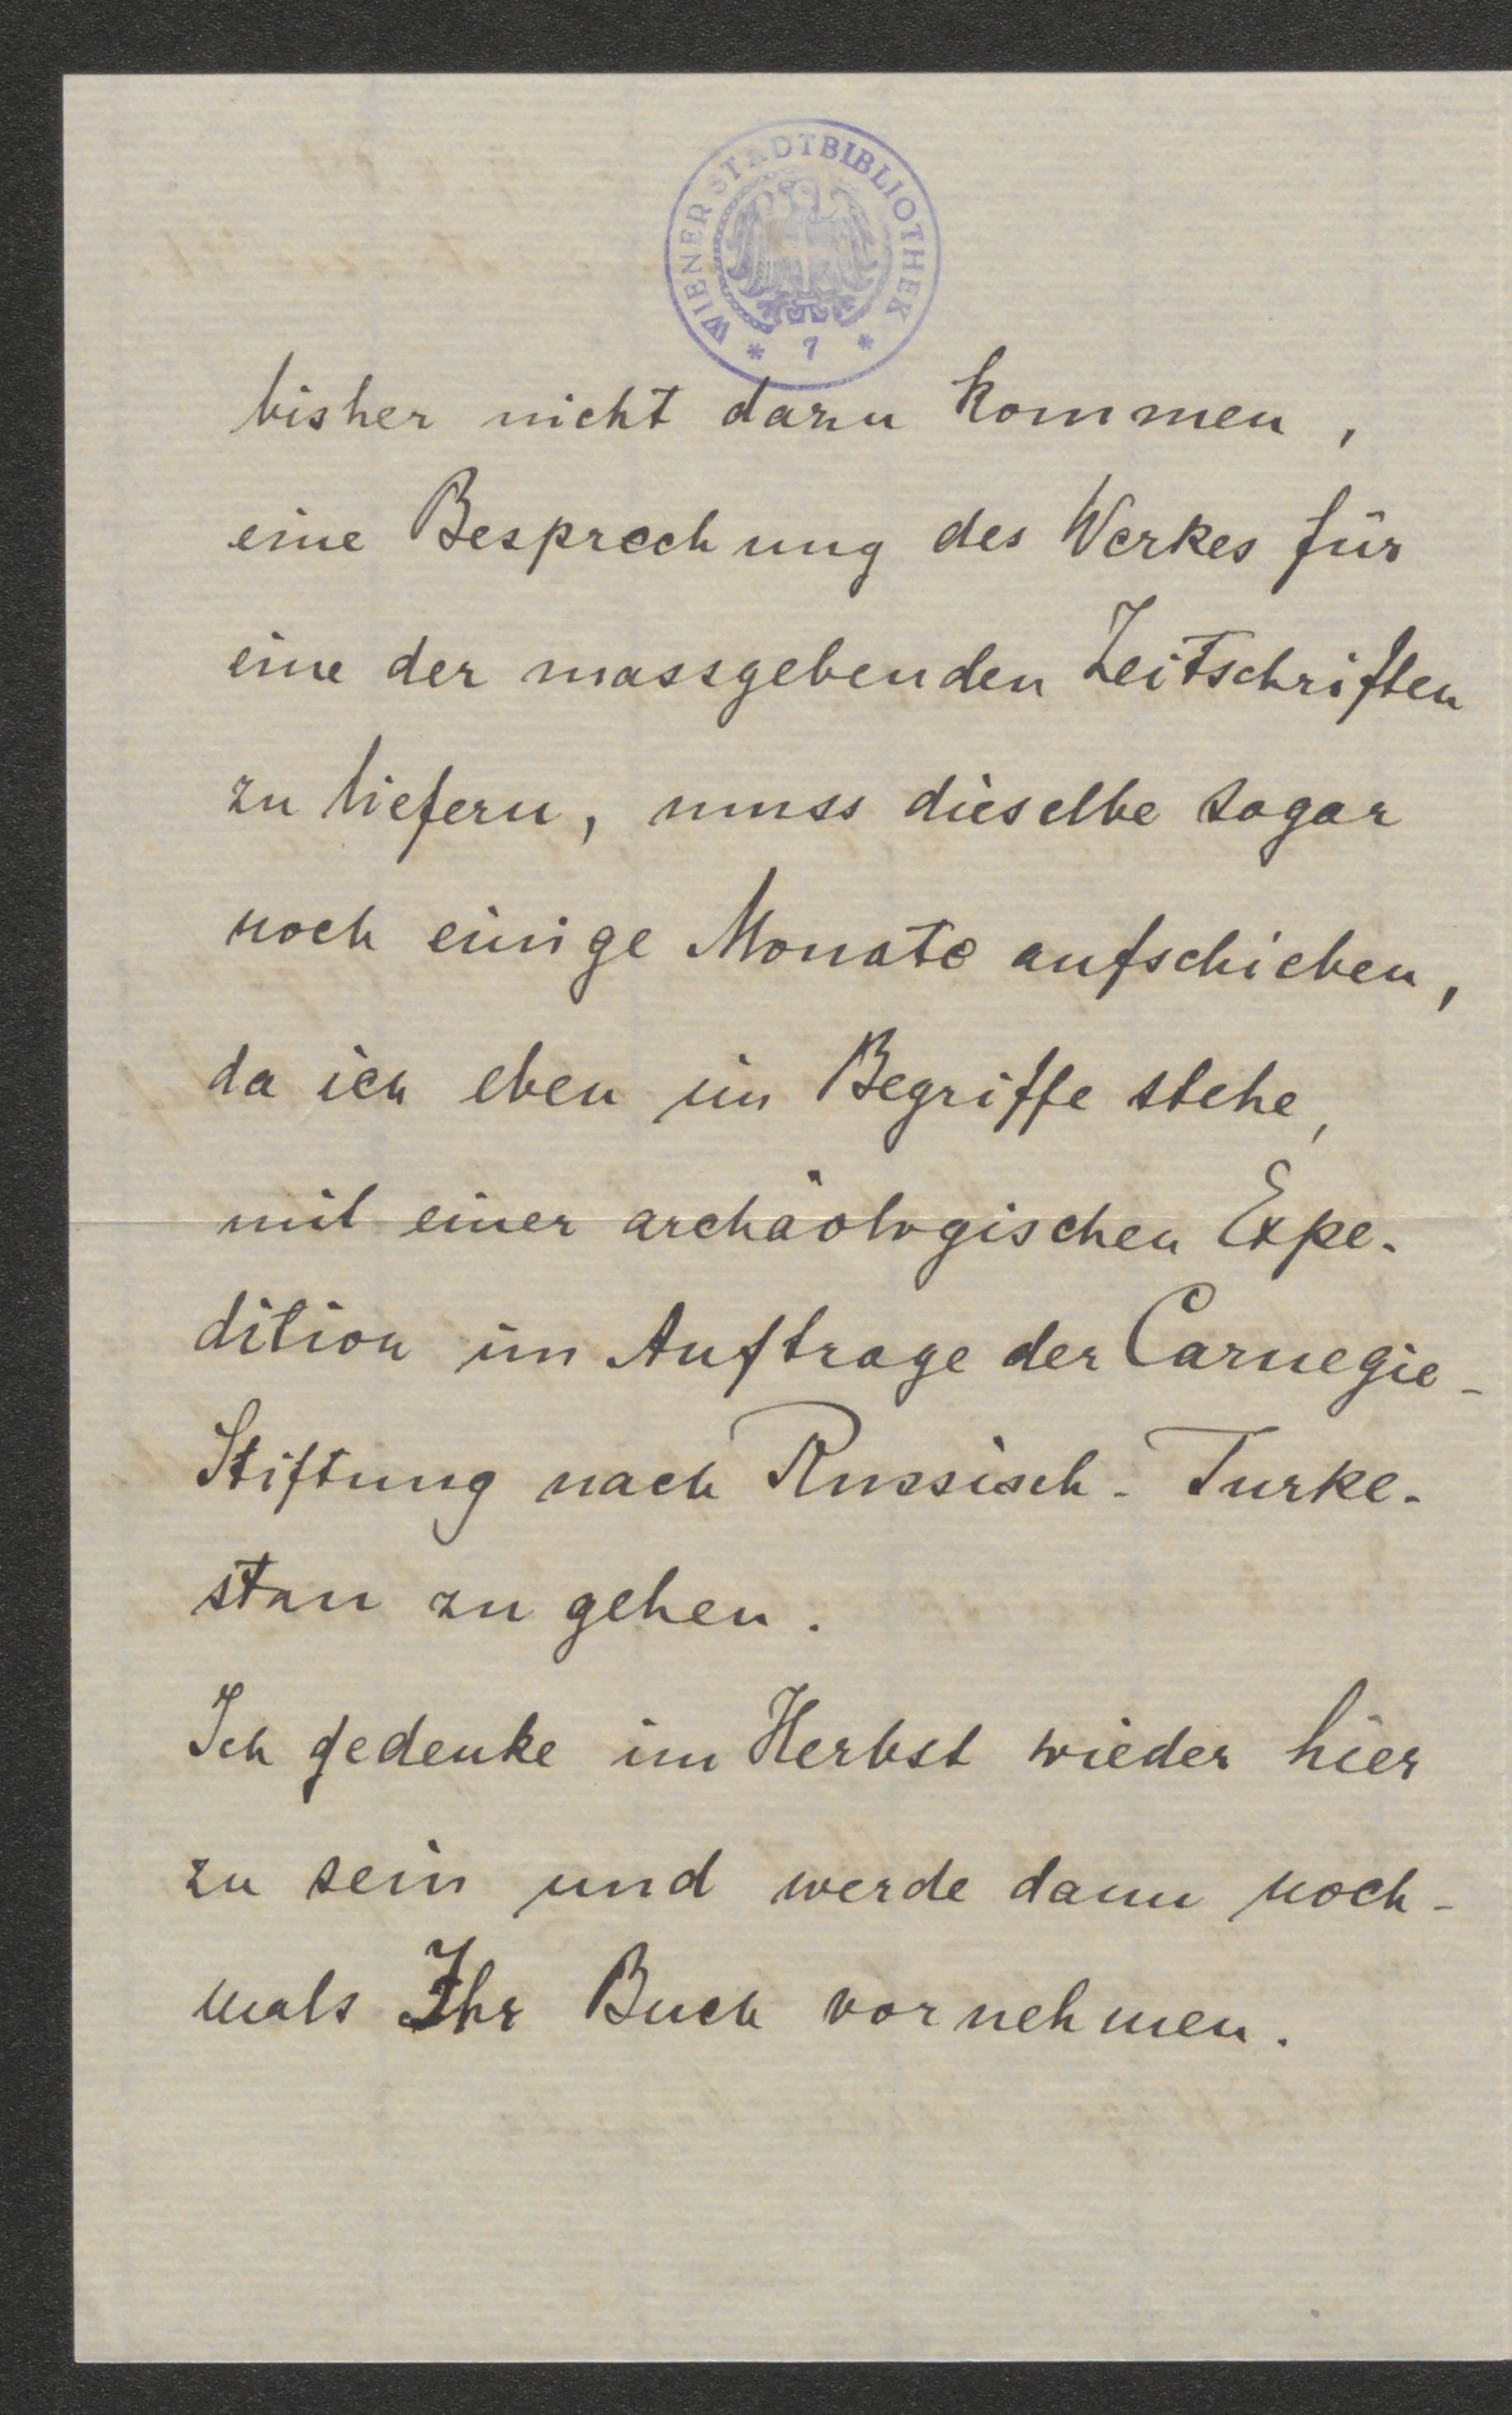 WIENER STADTBIBLIOTHEK
* 7 *
bisher nicht dazu kommen,
eine Besprechung des Werkes für
eine der massgebenden Zeitschriften
zu liefern, muss dieselbe sogar
noch einige Monate aufschieben,
da ich eben im Begriffe stehe,
mit einer archäologischen Expe-
dition im Auftrage der Carnegie-
Stiftung nach Russisch-Turke-
stan zu gehen.
Ich gedenke im Herbst wieder hier
zu sein und werde dann noch-
mals Ihr Buch vornehmen.